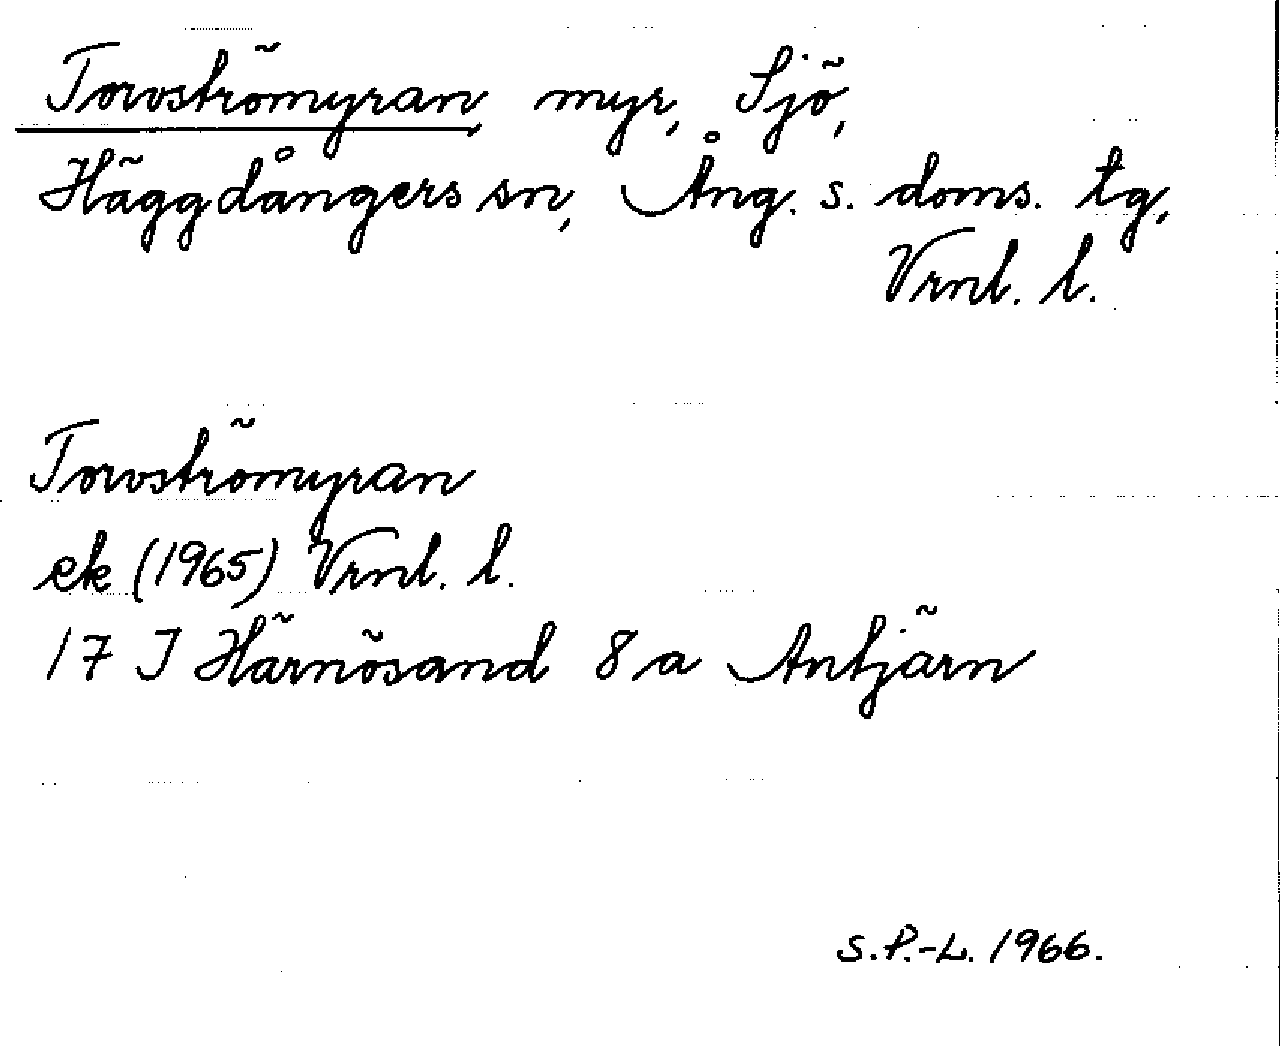 Torvströmyran, myr, Sjö,
Häggdångers sn, Ång. s. doms. tg,
Vrnl. l.
Torvströmyran
ek (1965) Vrnl. l.
17 I Härnösand 8 a Antjärn
S.P.-L. 1966.